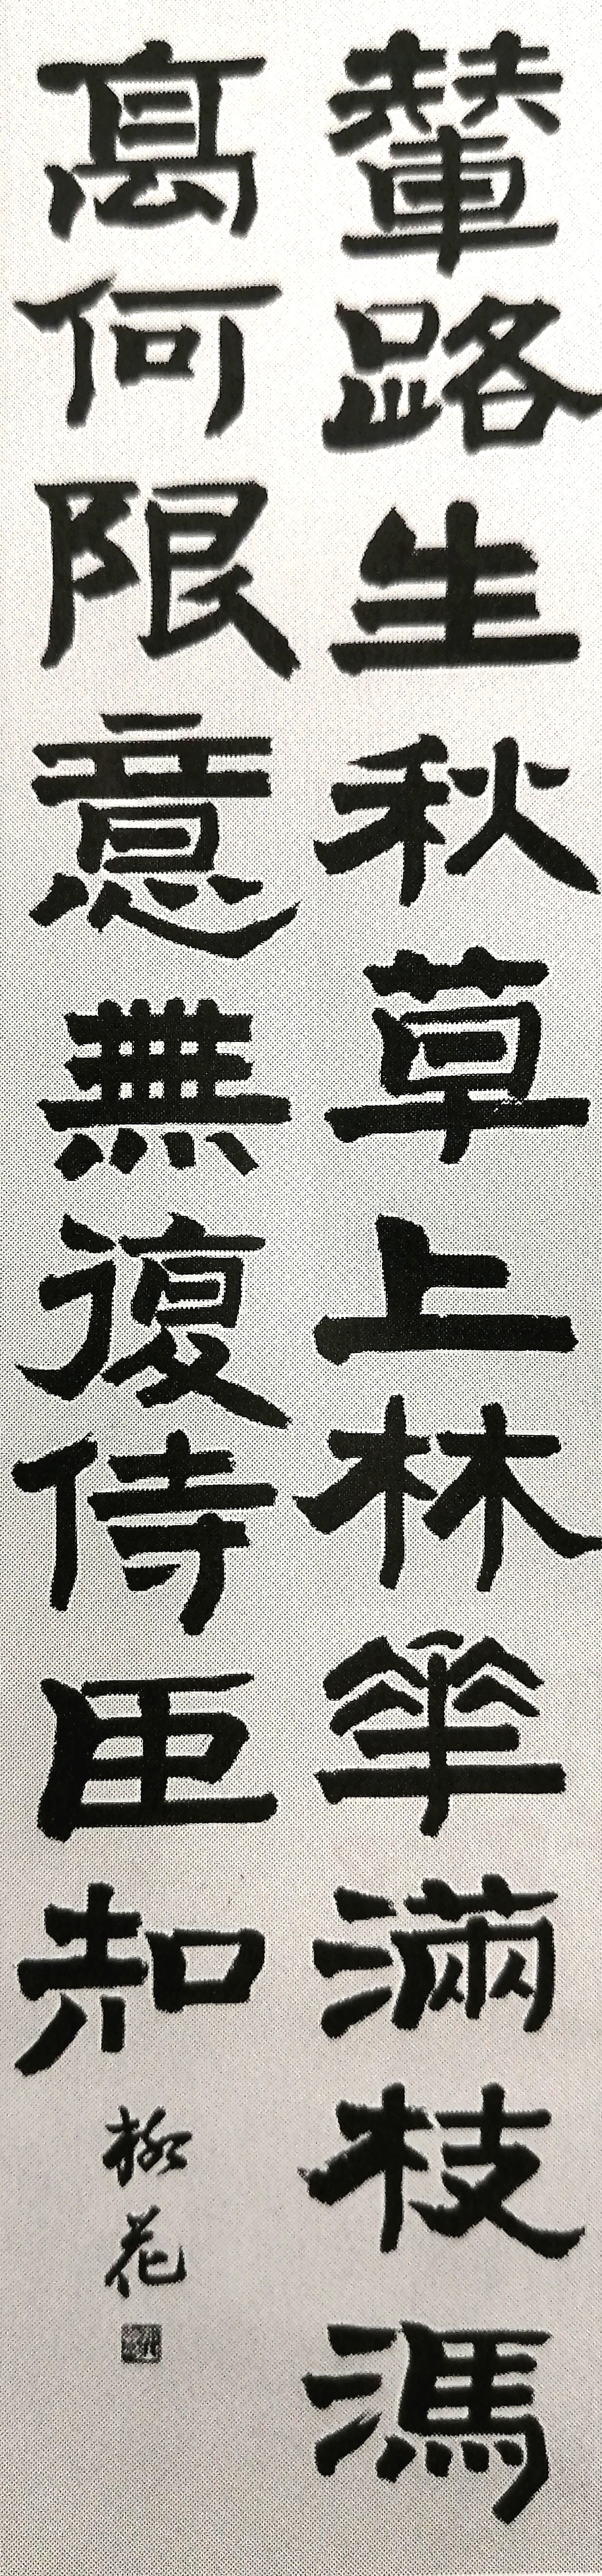 輦路生秋草上林華滿枝馮
髙何限意無復侍臣知
柳花